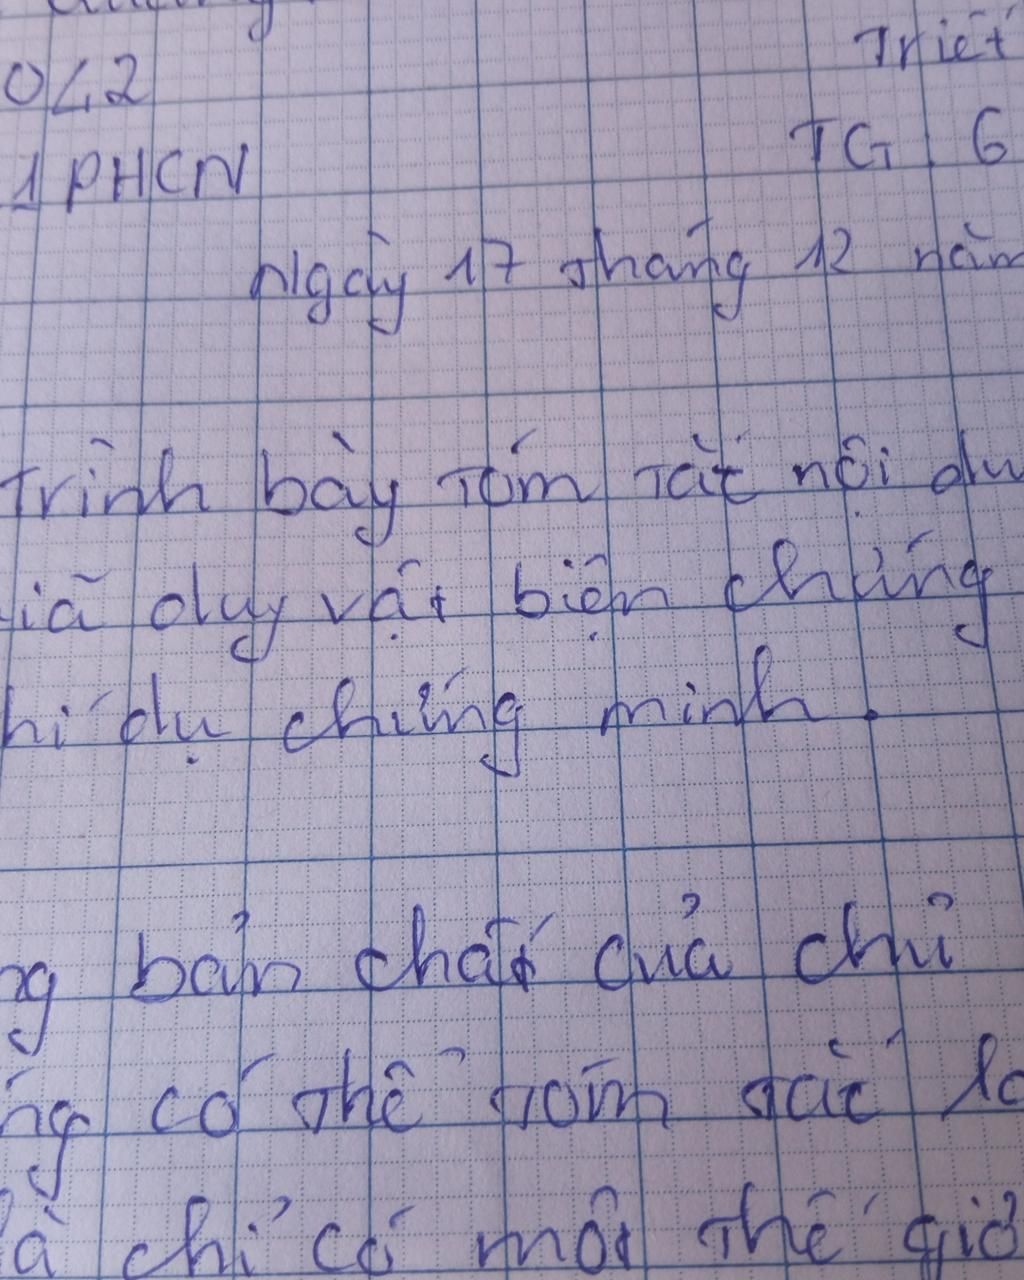 042 Triết
1 PHCN TG 6
Ngày 17 tháng 12 năm
Trình bày tóm tắt nội du
duy vật biện chứng
hí dụ chứng minh.
ng bản chất của chủ
ng có thể tóm tắt
là chỉ có một thế giớ